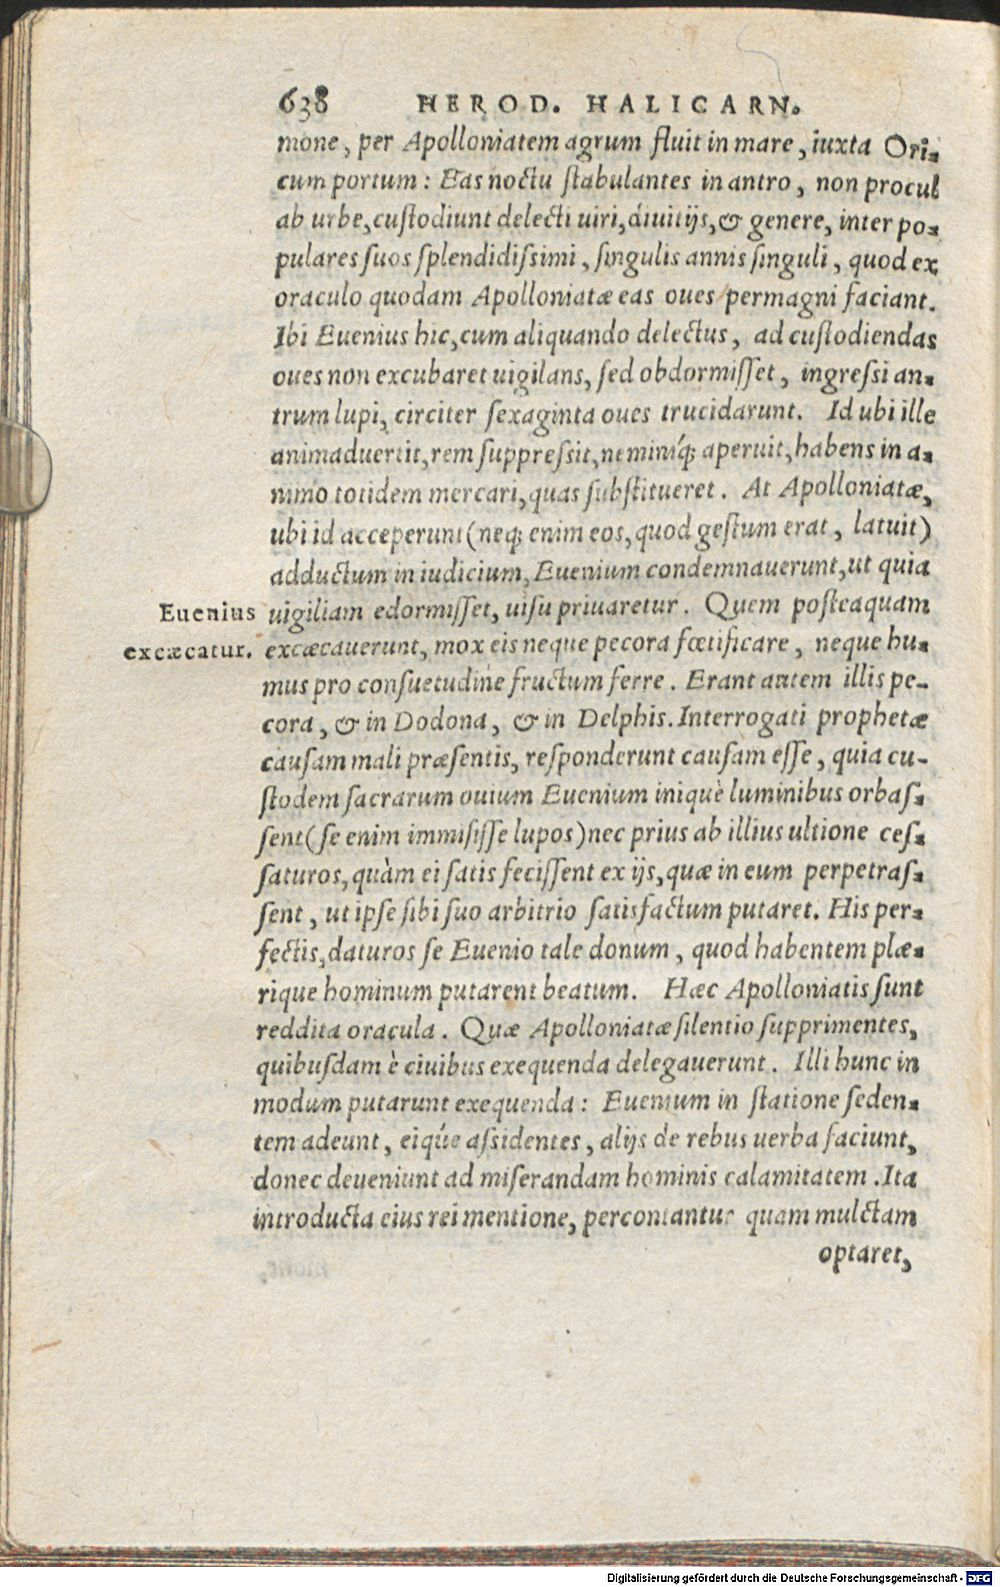 638 HEROD. HALICARN.
mone, per Apolloniatem agrum fluit in mare, iuxta Ori-
cum portum: Eas noctu ſtabulantes in antro, non procul
ab urbe, cuſtodiunt delecti uiri, diuitijs, & genere, inter po-
pulares ſuos ſplendidiſsimi, ſingulis annis ſinguli, quod ex
oraculo quodam Apolloniatæ eas oues permagni faciant.
Ibi Euenius hic, cum aliquando delectus, ad cuſtodiendas
oues non excubaret uigilans, ſed obdormiſſet, ingreſsi an-
trum lupi, circiter ſexaginta oues trucidarunt. Id ubi ille
animaduertit, rem ſuppreſsit, neminiq́; aperuit, habens in a-
nimo totidem mercari, quas ſubſtitueret. At Apolloniatæ,
ubi id acceperunt (neq; enim eos, quod geſtum erat, latuit)
adductum in iudicium, Euenium condemnauerunt, ut quia
Euenius uigiliam edormiſſet, uiſu priuaretur. Quem poſteaquam
excæcatur. excæcauerunt, mox eis neque pecora fœtificare, neque hu-
mus pro conſuetudine fructum ferre. Erant autem illis pe-
cora, & in Dodona, & in Delphis. Interrogati prophetæ
cauſam mali præſentis, reſponderunt cauſam eſſe, quia cu-
ſtodem ſacrarum ouium Euenium iniquè luminibus orbaſ-
ſent (ſe enim immiſiſſe lupos) nec prius ab illius ultione ceſ-
ſaturos, quàm ei ſatis feciſſent ex ijs, quæ in eum perpetraſ-
ſent, ut ipſe ſibi ſuo arbitrio ſatisfactum putaret. His per-
fectis, daturos ſe Euenio tale donum, quod habentem plæ-
rique hominum putarent beatum. Hæc Apolloniatis ſunt
reddita oracula. Quæ Apolloniatæ ſilentio ſupprimentes,
quibuſdam è ciuibus exequenda delegauerunt. Illi hunc in
modum putarunt exequenda: Euenium in ſtatione ſeden-
tem adeunt, eiq́ue aſsidentes, alijs de rebus uerba faciunt,
donec deueniunt ad miſerandam hominis calamitatem. Ita
introducta eius rei mentione, percontantur quam mulctam
optaret,
Digitalisierung gefördert durch die Deutsche Forschungsgemeinschaft - DFG